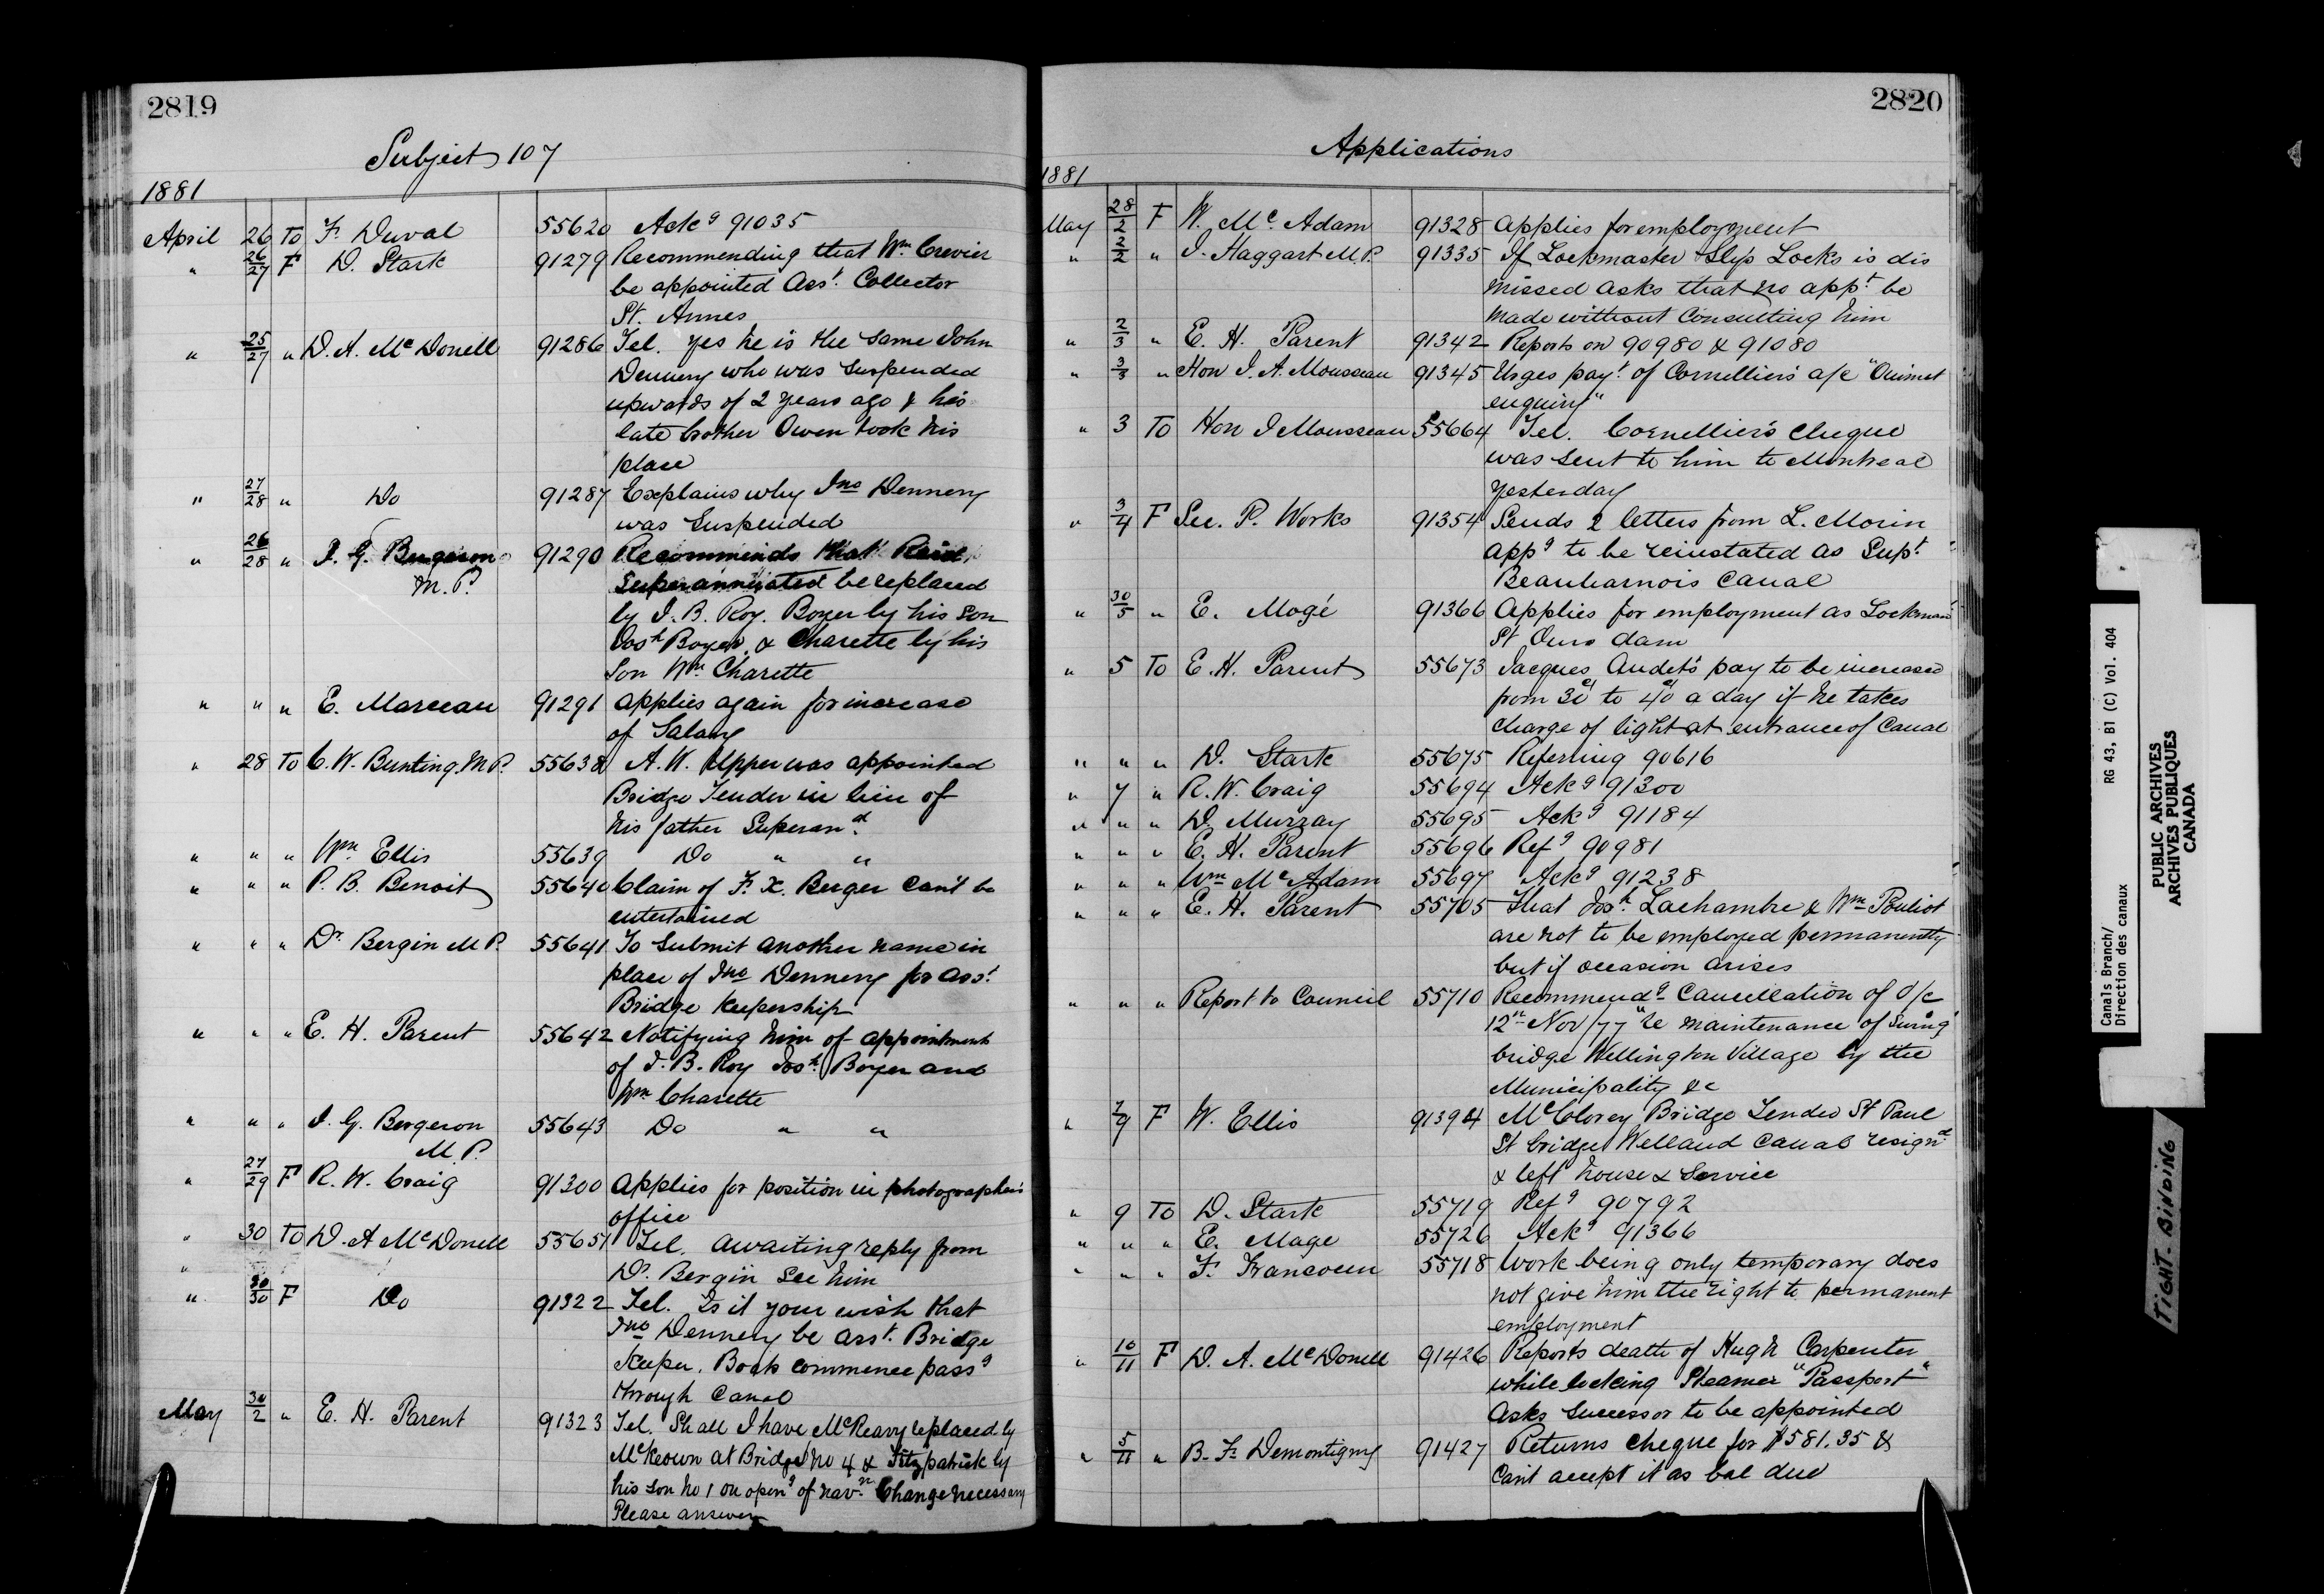 2819
Subject 107
1881
April 26 To F. Duval 55620 Ackg 91035
" 26/27 F D. Stark 91279 Recommending that Wm Crevier
be appointed Asst. Collector
St. Annes
" 25/27 " D. A. McDonell 91286 Tel. Yes he is the same John
Dennery who was suspended
upwards of 2 years ago & his
late brother Owen took his
place
" 27/28 " Do 91287 Explains why Jno Dennery
was suspended
" 26/28 " J. G. Bergeron 91290 Recommends that
M.P. Superannuated be replaced
by J. B. Roy. Boyer by his son
Josh Boyer, & Charette by his
son Wm Charette
" " " E. Marceau 91291 applies again for increase
of Salary
" 28 To C. W. Bunting M.P. 55638 A. W. Upper was appointed
Bridge Tender in lieu of
his father Superand.
" " " Wm Ellis 55639 Do " "
" " " P. B. Benoit 55640 Claim of F. X. Berger can't be
entertained
" " " Dr Bergin M.P. 55641 To submit another name in
place of Jno Dennery for asst
Bridge Keepership
" " " E. H. Parent 55642 Notifying him of appointment
of J. B. Roy Josh. Boyer and
Wm Charette
" " " J. G. Bergeron 55643 Do " "
M.P.
" 27/29 F R. W. Craig 91300 Applies for position in photographer's
office
" 30 To D. A McDonell 55651 Tel. awaiting reply from
" Dr. Bergin See him
" 30/30 F Do 91322 Tel. Is it your wish that
Jno Dennery be asst. Bridge
Keeper. Boats commence passg
through Canal
May 30/2 " E. H. Parent 91323 Tel. Shall I have McReavy replaced by
McKeown at Bridge No 4 & Fitzpatrick by
his son No 1 on openg of navn Change necessary
Please answer
2820
Applications
1881
May 28/2 F W. Mc Adam 91328 applies for employment
" 2/2 " J. Haggart M.P. 91335 If Lockmaster Slys Locks is dis
missed asks that no appt be
made without consulting him
" 2/3 " E. H. Parent 91342 Reports on 90980 & 91080
" 3/3 " Hon J. A. Mousseau 91345 Urges payt. of Cornellier's a/c "Ouimet
enquiry"
" 3 To Hon J Mousseau 55664 Tel. Cornellier's cheque
was sent to him to Montreal
yesterday
" 3/4 F Sec. P. Works 91354 Sends 2 letters from L. Morin
appg to be reinstated as Supt
Beauharnois Canal
" 30/5 " E. Magé 91366 Applies for employment as Lockman
St Ours dam
" 5 To E. H. Parent 55673 Jacques Audet's pay to be increased
from 30c to 40c a day if he takes
charge of light at entrance of Canal
" " " D. Stark 55675 Referring 90616
" 7 " R. W. Craig 55694 Ackg 91300
" " " D. Murray 55695 Ackg 91184
" " " E. H. Parent 55696 Refg 90981
" " " Wm McAdam 55697 Ackg 91238
" " " E. H. Parent 55705 That Josh. Lachambre & Wm Pouliot
are not to be employed permanently
but if occasion arises
" " " Report to Council 55710 Recommendg cancellation of O/c
12th Nov/77 re maintenance of swing
bridge Wellington Village by the
Municipality &c
" 7/9 F W. Ellis 91394 McClorey Bridge Tender St Paul
St bridge Welland Canal resignd
& left house & service
" 9 To D. Stark 55719 Refg 90792
" " " E. Mage 55726 Ackg 91366
" " " F. Francoeur 55718 Work being only temporary does
not give him the right to permanent
employment
" 10/11 F D. A. McDonell 91426 Reports death of Hugh Carpenter
while locking Steamer "Passport"
Asks successor to be appointed
" 5/11 " B. F. Demontigny 91427 Returns cheque for $581.35 &
can't accept it as bal due
Canals Branch/ RG 43, B1 (C) Vol. 404
Direction des canaux
PUBLIC ARCHIVES
ARCHIVES PUBLIQUES
CANADA
TIGHT BINDING